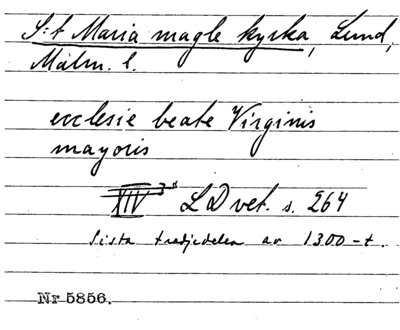 S:t Maria magle kyrka, Lund,
Malm. l.
ecclesie beate Virginis
mayoris
XIV 3:s LD vet. s. 264
Sista tredjedelen av 1300-t.
Nr 5856.